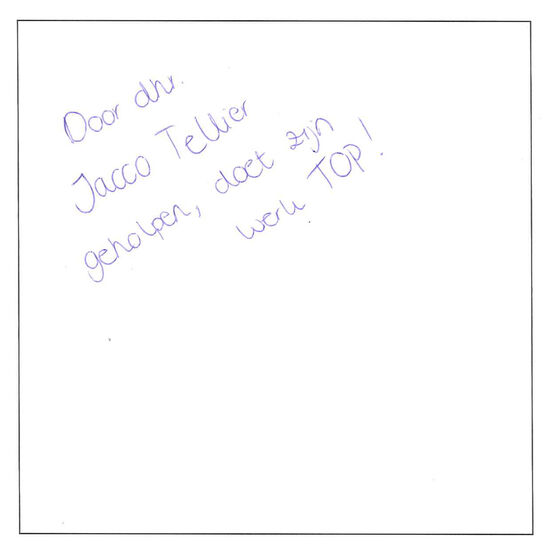 Door dhr.
Jacco Tellier
geholpen, doet zijn
werk TOP!